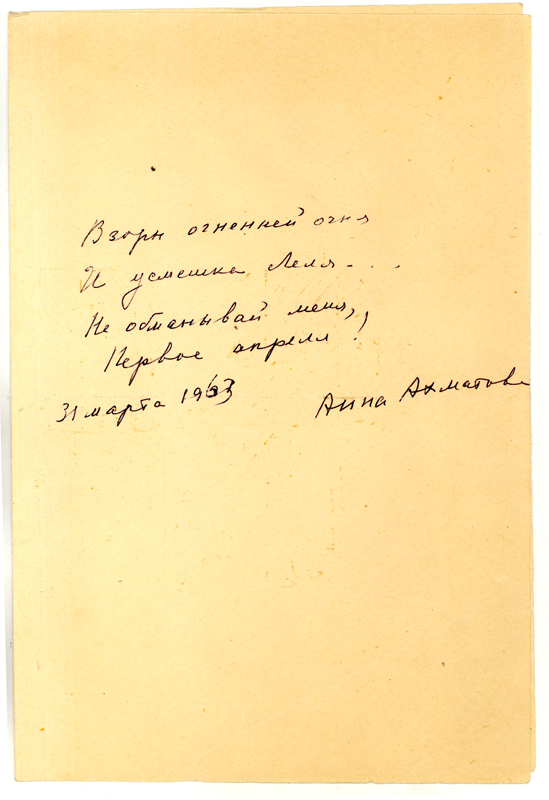 Взоры огненней огня
И усмешка Леля...
Не обманывай меня,
Первое апреля!
31 марта 1963
Анна Ахматова